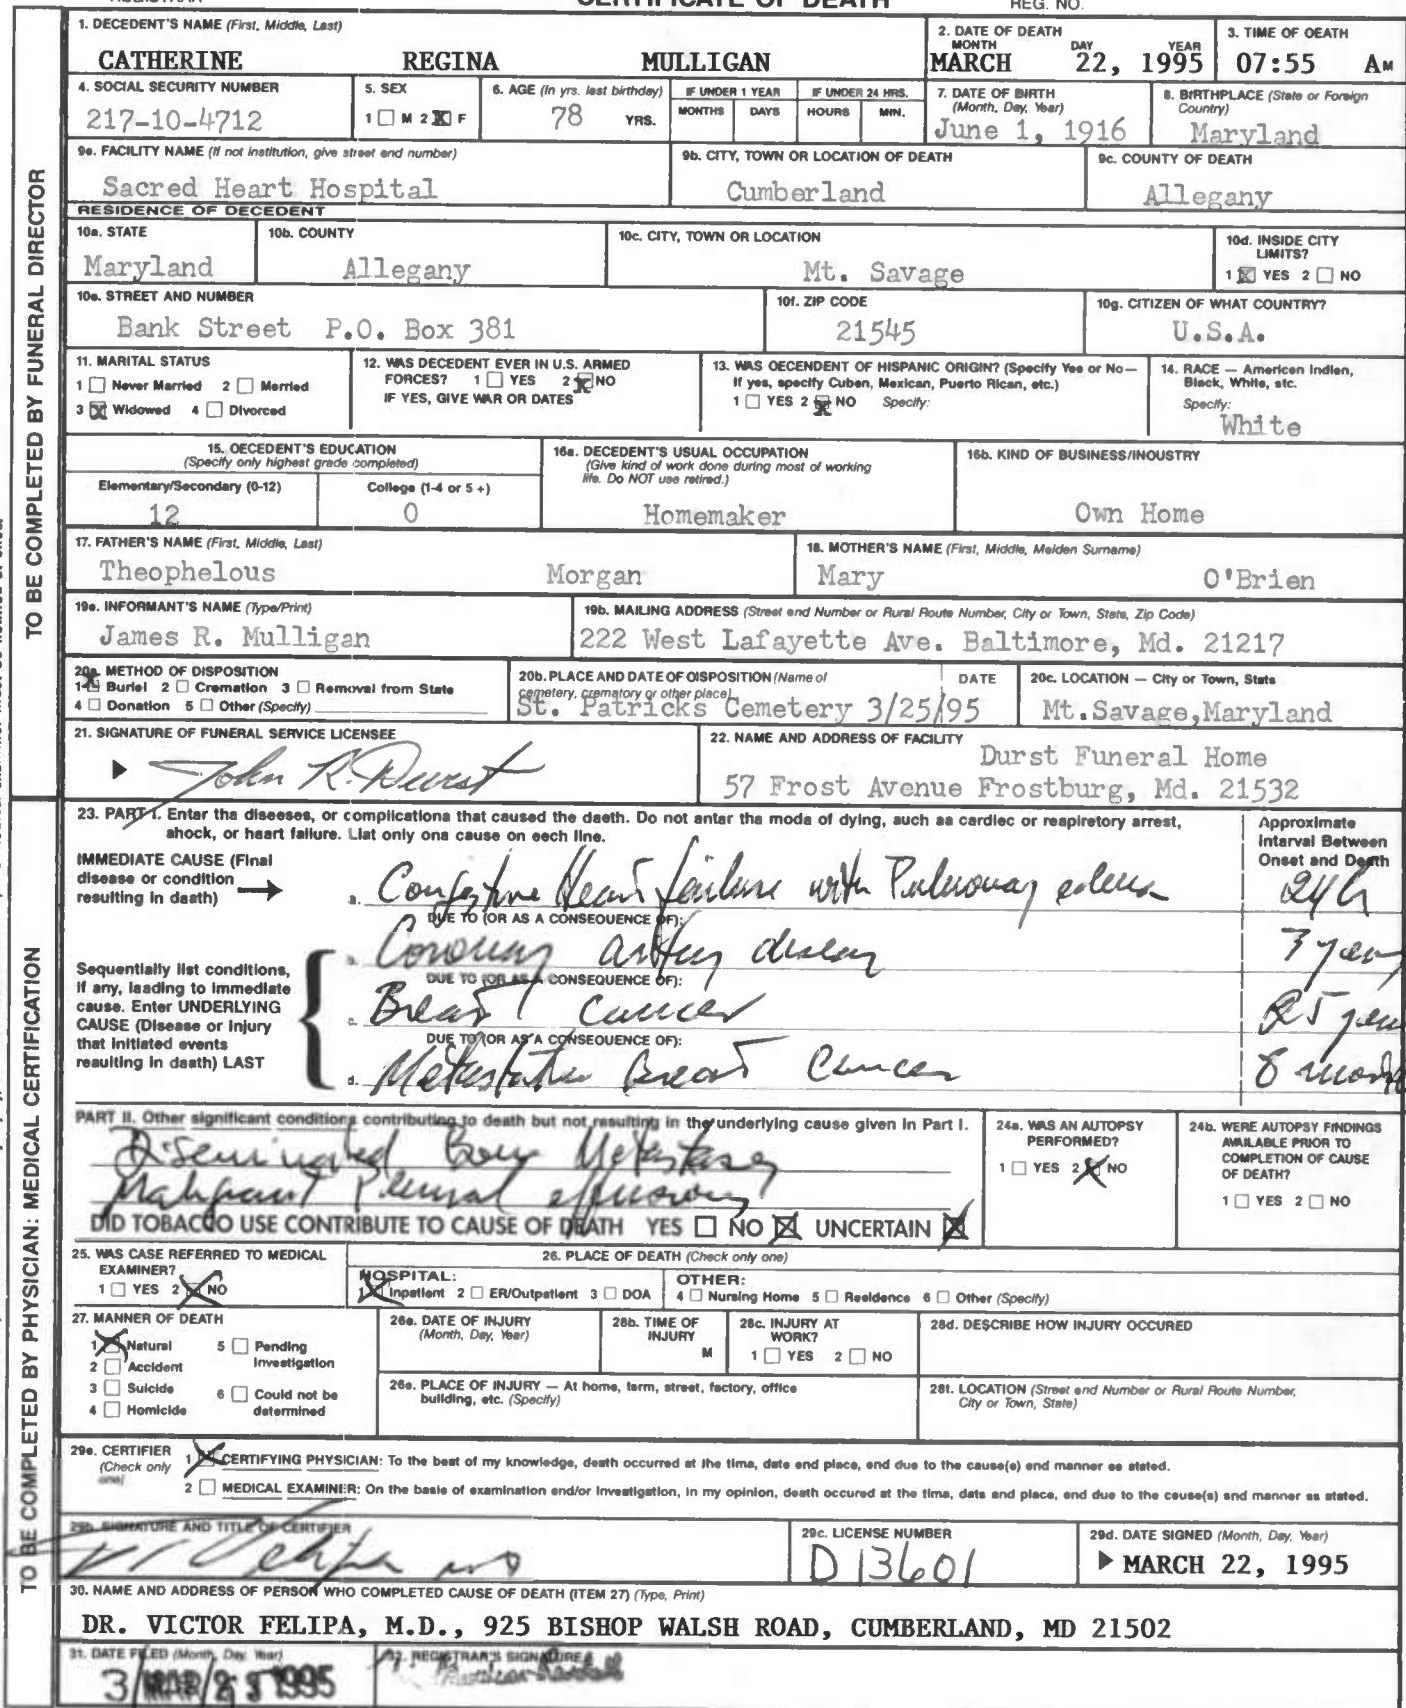 CERTIFICATE OF DEATH
REG. NO.
1. DECEDENT'S NAME (First, Middle, Last)
CATHERINE REGINA MULLIGAN
2. DATE OF DEATH
MONTH DAY YEAR
MARCH 22, 1995
3. TIME OF DEATH
07:55 AM
4. SOCIAL SECURITY NUMBER
217-10-4712
5. SEX
1 ☐ M 2 ☒ F
6. AGE (In yrs. last birthday)
78 YRS.
IF UNDER 1 YEAR
MONTHS DAYS
IF UNDER 24 HRS.
HOURS MIN.
7. DATE OF BIRTH
(Month, Day, Year)
June 1, 1916
8. BIRTHPLACE (State or Foreign
Country)
Maryland
9a. FACILITY NAME (If not institution, give street and number)
Sacred Heart Hospital
9b. CITY, TOWN OR LOCATION OF DEATH
Cumberland
9c. COUNTY OF DEATH
Allegany
RESIDENCE OF DECEDENT
10a. STATE
Maryland
10b. COUNTY
Allegany
10c. CITY, TOWN OR LOCATION
Mt. Savage
10d. INSIDE CITY
LIMITS?
1 ☒ YES 2 ☐ NO
10e. STREET AND NUMBER
Bank Street P.O. Box 381
10f. ZIP CODE
21545
10g. CITIZEN OF WHAT COUNTRY?
U.S.A.
11. MARITAL STATUS
1 ☐ Never Married 2 ☐ Married
3 ☒ Widowed 4 ☐ Divorced
12. WAS DECEDENT EVER IN U.S. ARMED
FORCES? 1 ☐ YES 2 ☒ NO
IF YES, GIVE WAR OR DATES
13. WAS DECENDENT OF HISPANIC ORIGIN? (Specify Yes or No—
If yes, specify Cuban, Mexican, Puerto Rican, etc.)
1 ☐ YES 2 ☒ NO Specify:
14. RACE — American Indien,
Black, White, etc.
Specify:
White
15. DECEDENT'S EDUCATION
(Specify only highest grade completed)
Elementary/Secondary (0-12)
12
College (1-4 or 5 +)
0
16a. DECEDENT'S USUAL OCCUPATION
(Give kind of work done during most of working
life. Do NOT use retired.)
Homemaker
16b. KIND OF BUSINESS/INDUSTRY
Own Home
17. FATHER'S NAME (First, Middle, Last)
Theophelous Morgan
18. MOTHER'S NAME (First, Middle, Maiden Surname)
Mary O'Brien
19a. INFORMANT'S NAME (Type/Print)
James R. Mulligan
19b. MAILING ADDRESS (Street and Number or Rural Route Number, City or Town, State, Zip Code)
222 West Lafayette Ave. Baltimore, Md. 21217
20a. METHOD OF DISPOSITION
1 ☒ Burial 2 ☐ Cremation 3 ☐ Removal from State
4 ☐ Donation 5 ☐ Other (Specify)
20b. PLACE AND DATE OF DISPOSITION (Name of
cemetery, crematory or other place) DATE
St. Patricks Cemetery 3/25/95
20c. LOCATION — City or Town, State
Mt.Savage,Maryland
21. SIGNATURE OF FUNERAL SERVICE LICENSEE
John R. Durst
22. NAME AND ADDRESS OF FACILITY
Durst Funeral Home
57 Frost Avenue Frostburg, Md. 21532
TO BE COMPLETED BY FUNERAL DIRECTOR
23. PART I. Enter the diseases, or complications that caused the death. Do not enter the mode of dying, such as cardiac or respiratory arrest,
shock, or heart failure. List only one cause on each line.
Approximate
Interval Between
Onset and Death
IMMEDIATE CAUSE (Final
disease or condition
resulting in death)
a. Congestive Heart failure with Pulmonary edema 24 h
DUE TO (OR AS A CONSEQUENCE OF):
b. Coronary artery disease years
DUE TO (OR AS A CONSEQUENCE OF):
c. Breast Cancer 25 years
DUE TO (OR AS A CONSEQUENCE OF):
d. Metastatic Breast Cancer 8 months
Sequentially list conditions,
if any, leading to immediate
cause. Enter UNDERLYING
CAUSE (Disease or injury
that initiated events
resulting in death) LAST
PART II. Other significant conditions contributing to death but not resulting in the underlying cause given in Part I.
Diseminated Bony Metastases
Malignant Pleural effusion
DID TOBACCO USE CONTRIBUTE TO CAUSE OF DEATH YES ☐ NO ☒ UNCERTAIN ☒
24a. WAS AN AUTOPSY
PERFORMED?
1 ☐ YES 2 ☒ NO
24b. WERE AUTOPSY FINDINGS
AVAILABLE PRIOR TO
COMPLETION OF CAUSE
OF DEATH?
1 ☐ YES 2 ☐ NO
25. WAS CASE REFERRED TO MEDICAL
EXAMINER?
1 ☐ YES 2 ☒ NO
26. PLACE OF DEATH (Check only one)
HOSPITAL:
1 ☒ Inpatient 2 ☐ ER/Outpatient 3 ☐ DOA
OTHER:
4 ☐ Nursing Home 5 ☐ Residence 6 ☐ Other (Specify)
27. MANNER OF DEATH
1 ☒ Natural 5 ☐ Pending
2 ☐ Accident Investigation
3 ☐ Suicide 6 ☐ Could not be
4 ☐ Homicide determined
28a. DATE OF INJURY
(Month, Day, Year)
28b. TIME OF
INJURY
M
28c. INJURY AT
WORK?
1 ☐ YES 2 ☐ NO
28d. DESCRIBE HOW INJURY OCCURED
28e. PLACE OF INJURY — At home, farm, street, factory, office
building, etc. (Specify)
28f. LOCATION (Street and Number or Rural Route Number,
City or Town, State)
29a. CERTIFIER
(Check only
one)
1 ☒ CERTIFYING PHYSICIAN: To the best of my knowledge, death occurred at the time, date and place, and due to the cause(s) and manner as stated.
2 ☐ MEDICAL EXAMINER: On the basis of examination and/or investigation, in my opinion, death occured at the time, date and place, and due to the cause(s) and manner as stated.
29b. SIGNATURE AND TITLE OF CERTIFIER
V Felipa MD
29c. LICENSE NUMBER
D 13601
29d. DATE SIGNED (Month, Day, Year)
MARCH 22, 1995
30. NAME AND ADDRESS OF PERSON WHO COMPLETED CAUSE OF DEATH (ITEM 27) (Type, Print)
DR. VICTOR FELIPA, M.D., 925 BISHOP WALSH ROAD, CUMBERLAND, MD 21502
31. DATE FILED (Month, Day, Year)
1995
32. REGISTRAR'S SIGNATURE
TO BE COMPLETED BY PHYSICIAN: MEDICAL CERTIFICATION